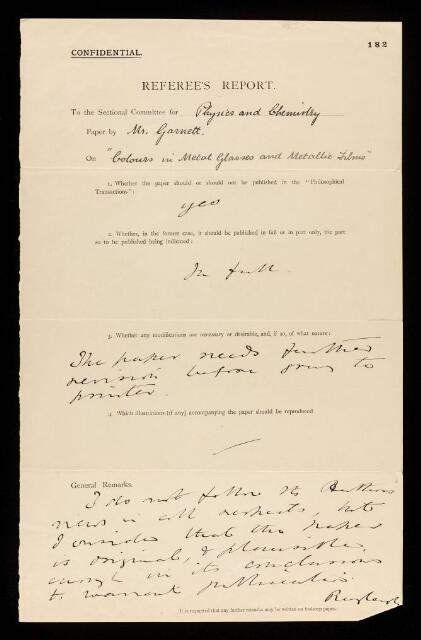 182
CONFIDENTIAL.
REFEREE'S REPORT.
To the Sectional Committee for Physics and Chemistry
Paper by Mr. Garnett.
On "Colours in Metal Glasses and Metallic Films"
1. Whether the paper should or should not be published in the "Philosophical
Transactions":
yes
2. Whether, in the former case, it should be published in full or in part only, the part
so to be published being indicated:
In full.
3. Whether any modifications are necessary or desirable, and, if so, of what nature:
The paper needs further
revision before going to
printer.
4. Which illustrations (if any) accompanying the paper should be reproduced
General Remarks.
I do not follow the Author's
views in all respects, but
I consider that the paper
is original, & plausible
enough in its conclusions
to warrant publication.
Rayleigh
It is requested that any further remarks may be written on foolscap paper.